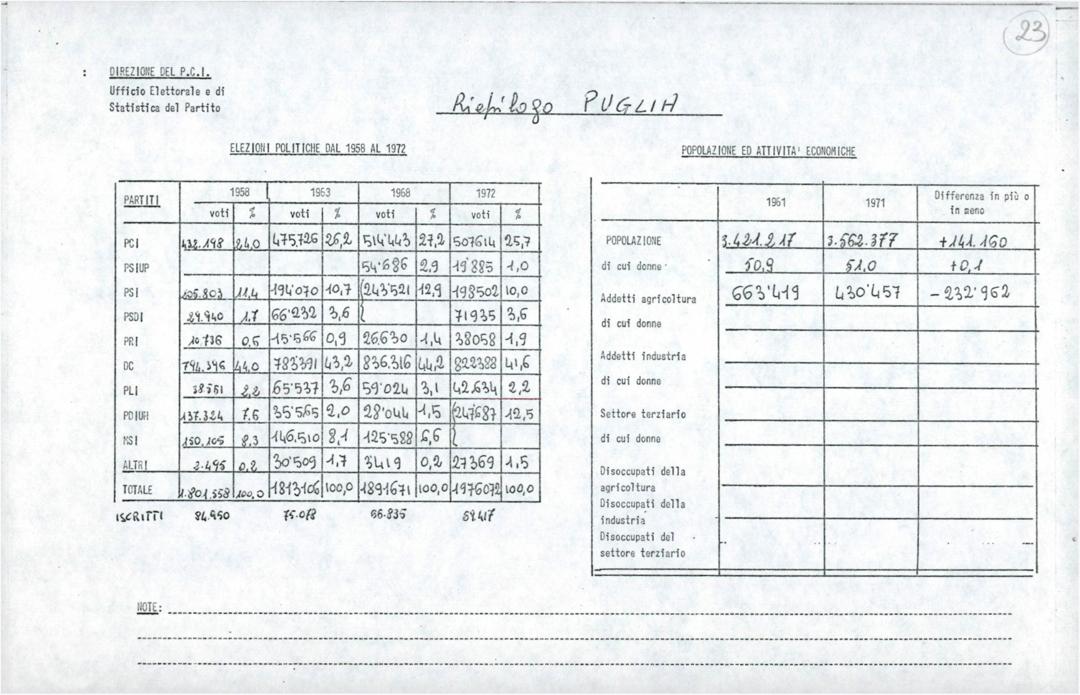 23
:
DIREZIONE DEL P.C.I.
Ufficio Elettorale e di
Statistica del Partito
Riepilogo PUGLIA
ELEZIONI POLITICHE DAL 1958 AL 1972
PARTITI 1958 1953 1968 1972
voti % voti % voti % voti %
PCI 432.198 24,0 475,726 26,2 514'443 27,2 507614 25,7
PSIUP 54'686 2,9 19'885 1,0
PSI 205.803 11,4 194'070 10,7 243'521 12,9 198502 10,0
PSDI 29.940 1.7 66'232 3,6 71935 3,6
PRI 10.736 0,6 15'566 0,9 26,630 1,4 38058 1,9
DC 794.396 44,0 783'391 43,2 836.316 44,2 822388 41,6
PLI 38761 2,2 65'537 3,6 59'024 3,1 42.634 2,2
PDIUM 137.324 7.6 35'565 2,0 28'044 1,5 247'687 12,5
MSI 150.105 8,3 146.510 8,1 125'588 6,6
ALTRI 2.495 0,2 30'509 1,7 3'419 0,2 27369 1,5
TOTALE 1.801.558 100,0 1813106 100,0 1891671 100,0 1976072 100,0
ISCRITTI 84.950 75.078 66.835 69.417
POPOLAZIONE ED ATTIVITA' ECONOMICHE
1961 1971 Differenza in più o
in meno
POPOLAZIONE 3.421.217 3.562.377 +141.160
di cui donne 50,9 51,0 +0,1
Addetti agricoltura 663'419 430'457 -232'962
di cui donne
Addetti industria
di cui donne
Settore terziario
di cui donne
Disoccupati della
agricoltura
Disoccupati della
industria
Disoccupati del
settore terziario
NOTE: